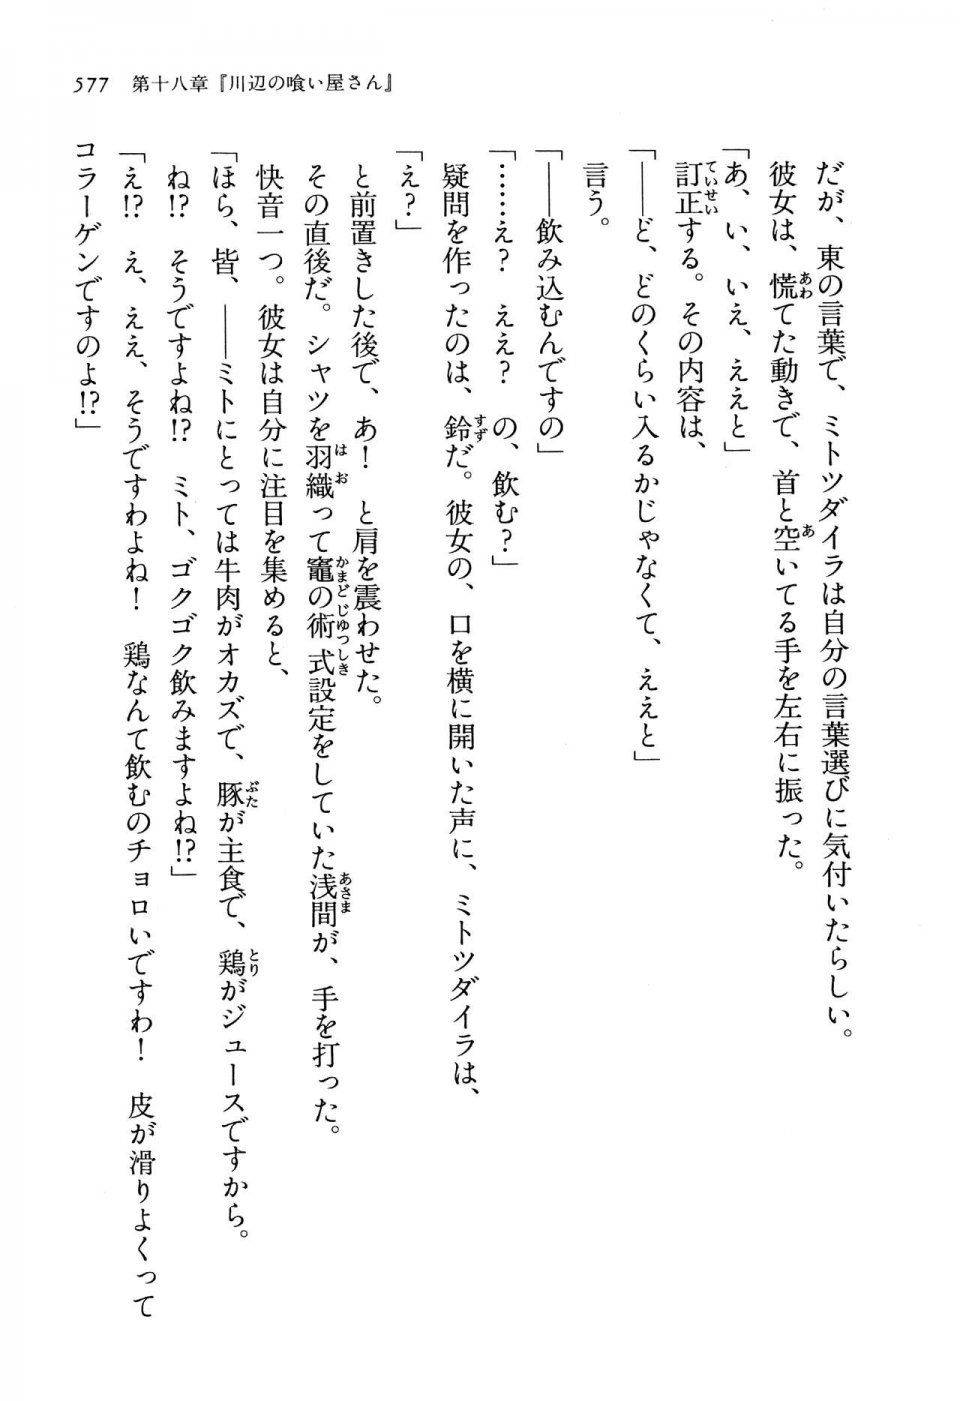 577　第十八章『川辺の喰い屋さん』
だが、東の言葉で、ミトツダイラは自分の言葉選びに気付いたらしい。
彼女は、慌てた動きで、首と空いてる手を左右に振った。
「あ、い、いえ、ええと」
訂正する。その内容は、
「――ど、どのくらい入るかじゃなくて、ええと」
言う。
「――飲み込むんですの」
「……え？　ええ？　の、飲む？」
疑問を作ったのは、鈴だ。彼女の、口を横に開いた声に、ミトツダイラは、
「え？」
と前置きした後で、あ！　と肩を震わせた。
その直後だ。シャツを羽織って竈の術式設定をしていた浅間が、手を打った。
快音一つ。彼女は自分に注目を集めると、
「ほら、皆、――ミトにとっては牛肉がオカズで、豚が主食で、鶏がジュースですから。
ね!?　そうですよね!?　ミト、ゴクゴク飲みますよね!?」
「え!?　え、ええ、そうですわよね！　鶏なんて飲むのチョロいですわ！　皮が滑りよくって
コラーゲンですのよ!?」